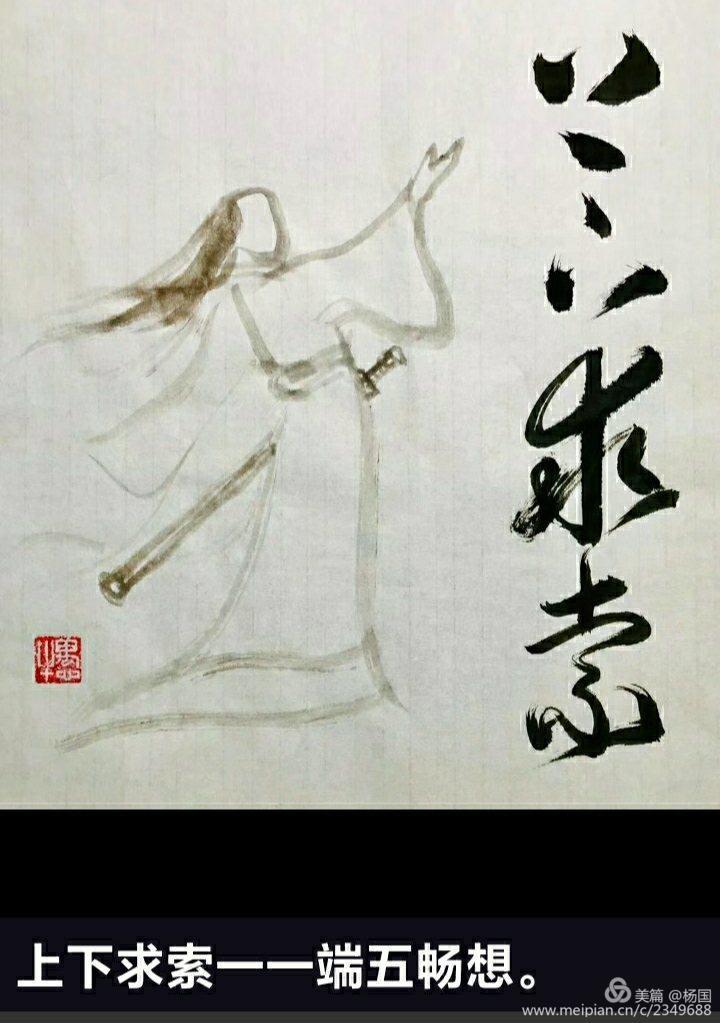 上下求索
上下求索一一端五畅想。
美篇 @杨国
www.meipian.cn/c/2349688